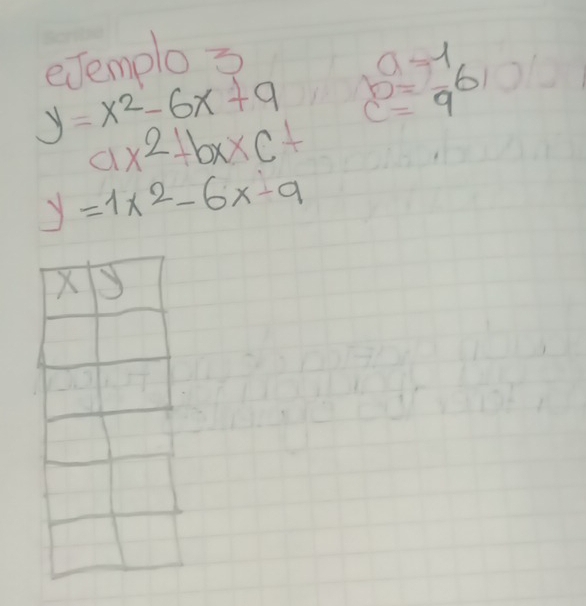 eJemplo 3
y = x2 - 6x + 9
ax2 + bx x c +
y = 1x2 - 6x + 9
a = 1
b = -6
c = 9
x y